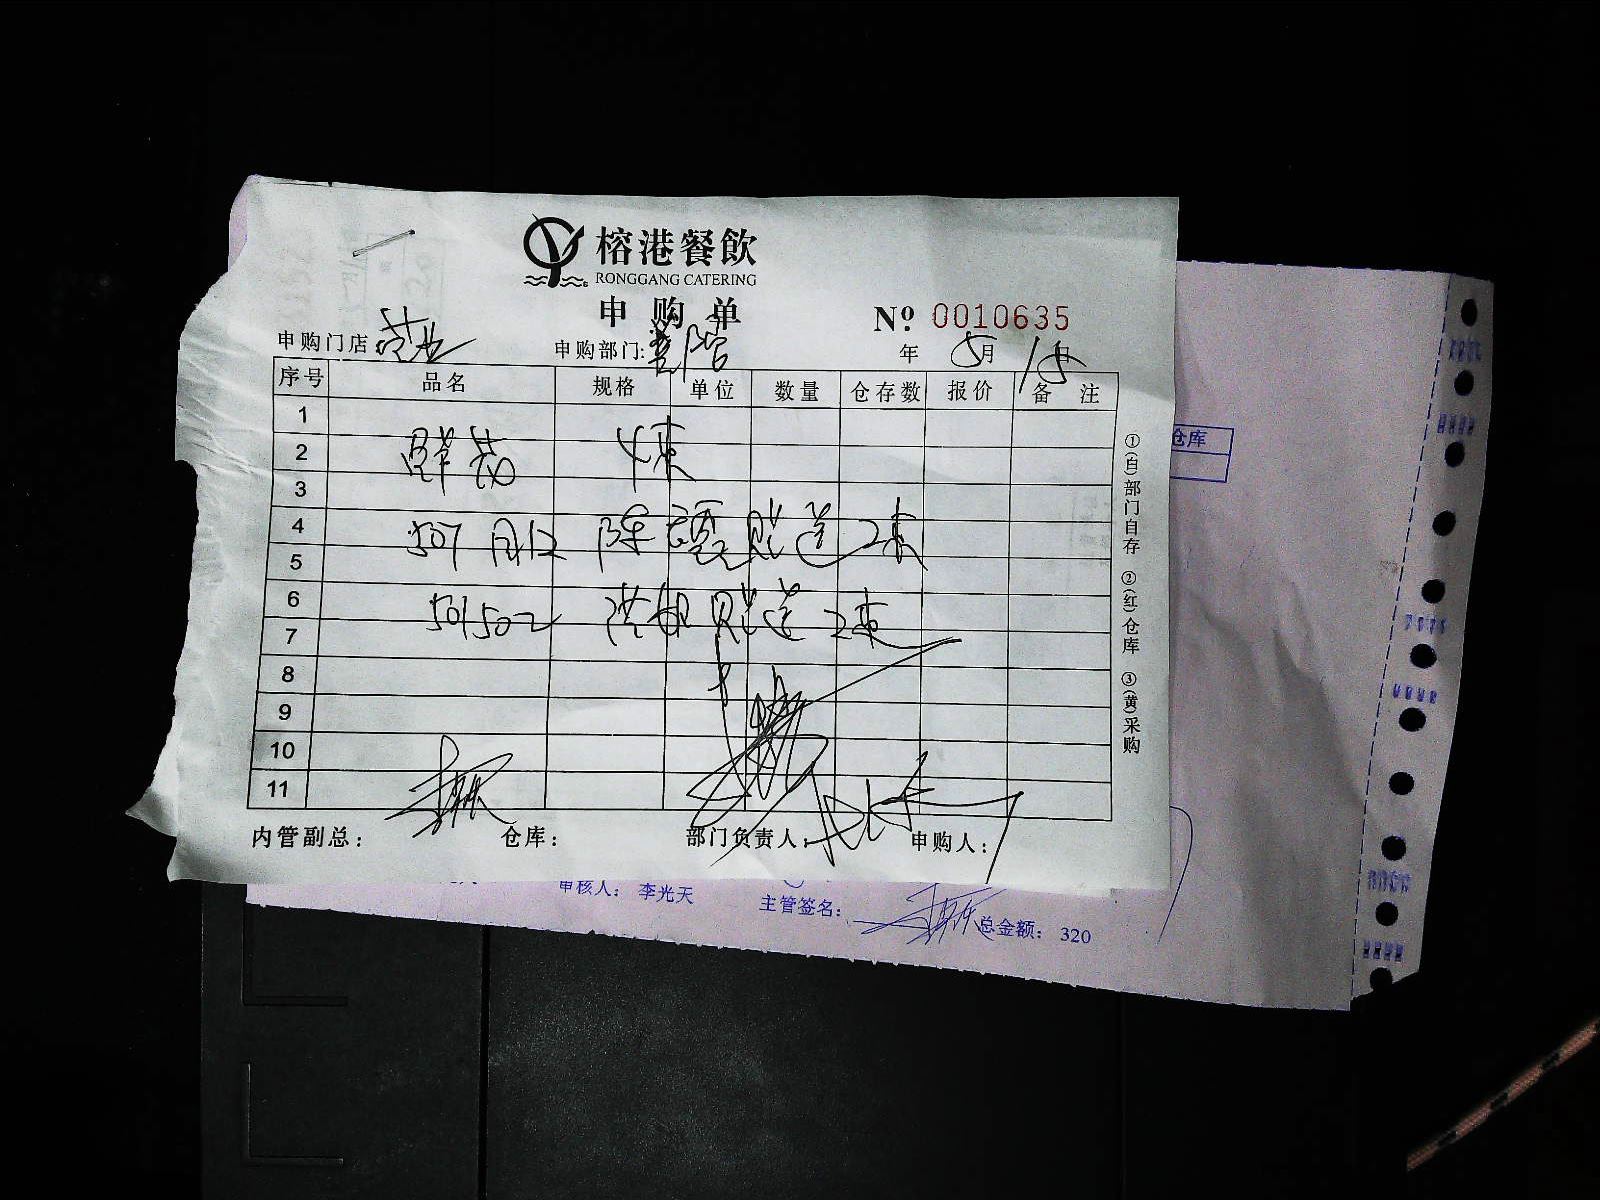 榕港餐飲
RONGGANG CATERING
申购单
Nº 0010635
申购门店 申购部门: 营 年 5月 15日
序号 品名 规格 单位 数量 仓存数 报价 备注
1
2 鲜花 4束
3
4 507 陈 赠送2束
5
6 501 502 洪 赠送2束
7
8
9
10
11
内管副总: 仓库: 部门负责人: 申购人:
①(白)部门自存 ②(红)仓库 ③(黄)采购
仓库
审核人: 李光天 主管签名: 总金额: 320